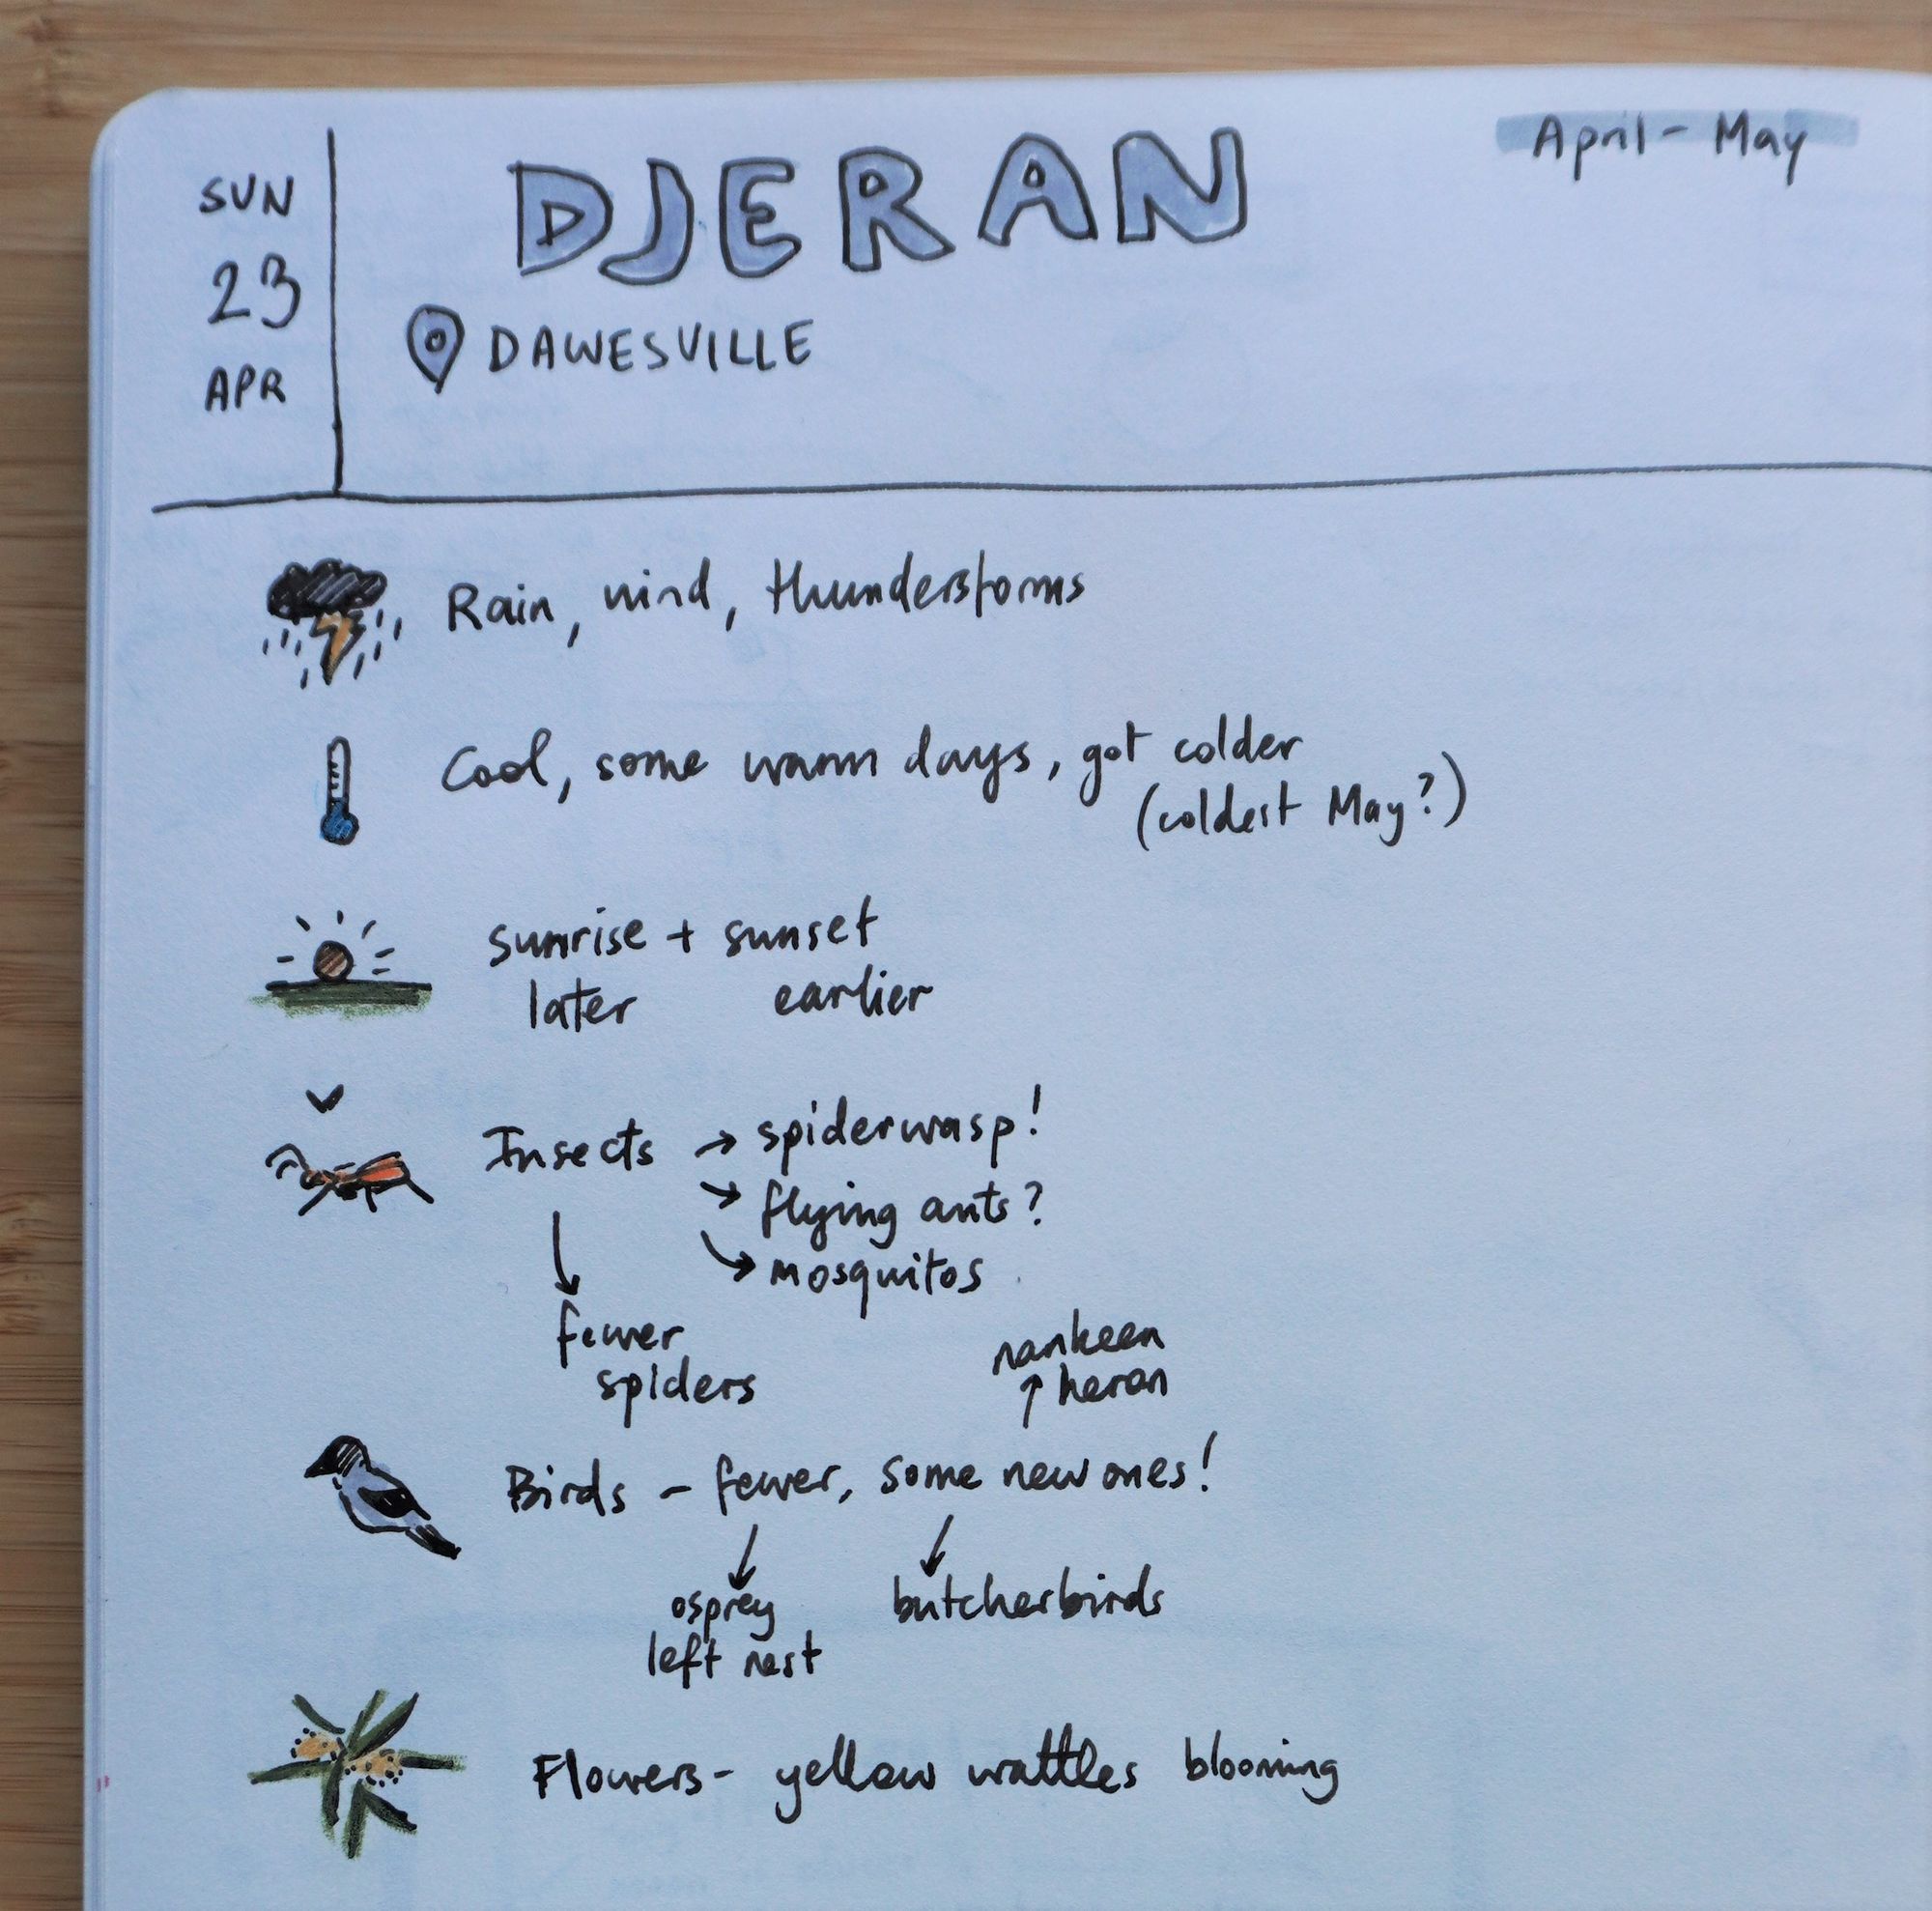 SUN
23
APR
DJERAN
April - May
DAWESVILLE
Rain, wind, thunderstorms
Cool, some warm days, got colder
(coldest May?)
sunrise + sunset
later earlier
Insects → spiderwasp!
→ flying ants?
→ mosquitos
↓
fewer
spiders
nankeen
↑ heron
Birds - fewer, some new ones!
↓ ↓
osprey butcherbirds
left nest
Flowers - yellow wattles blooming